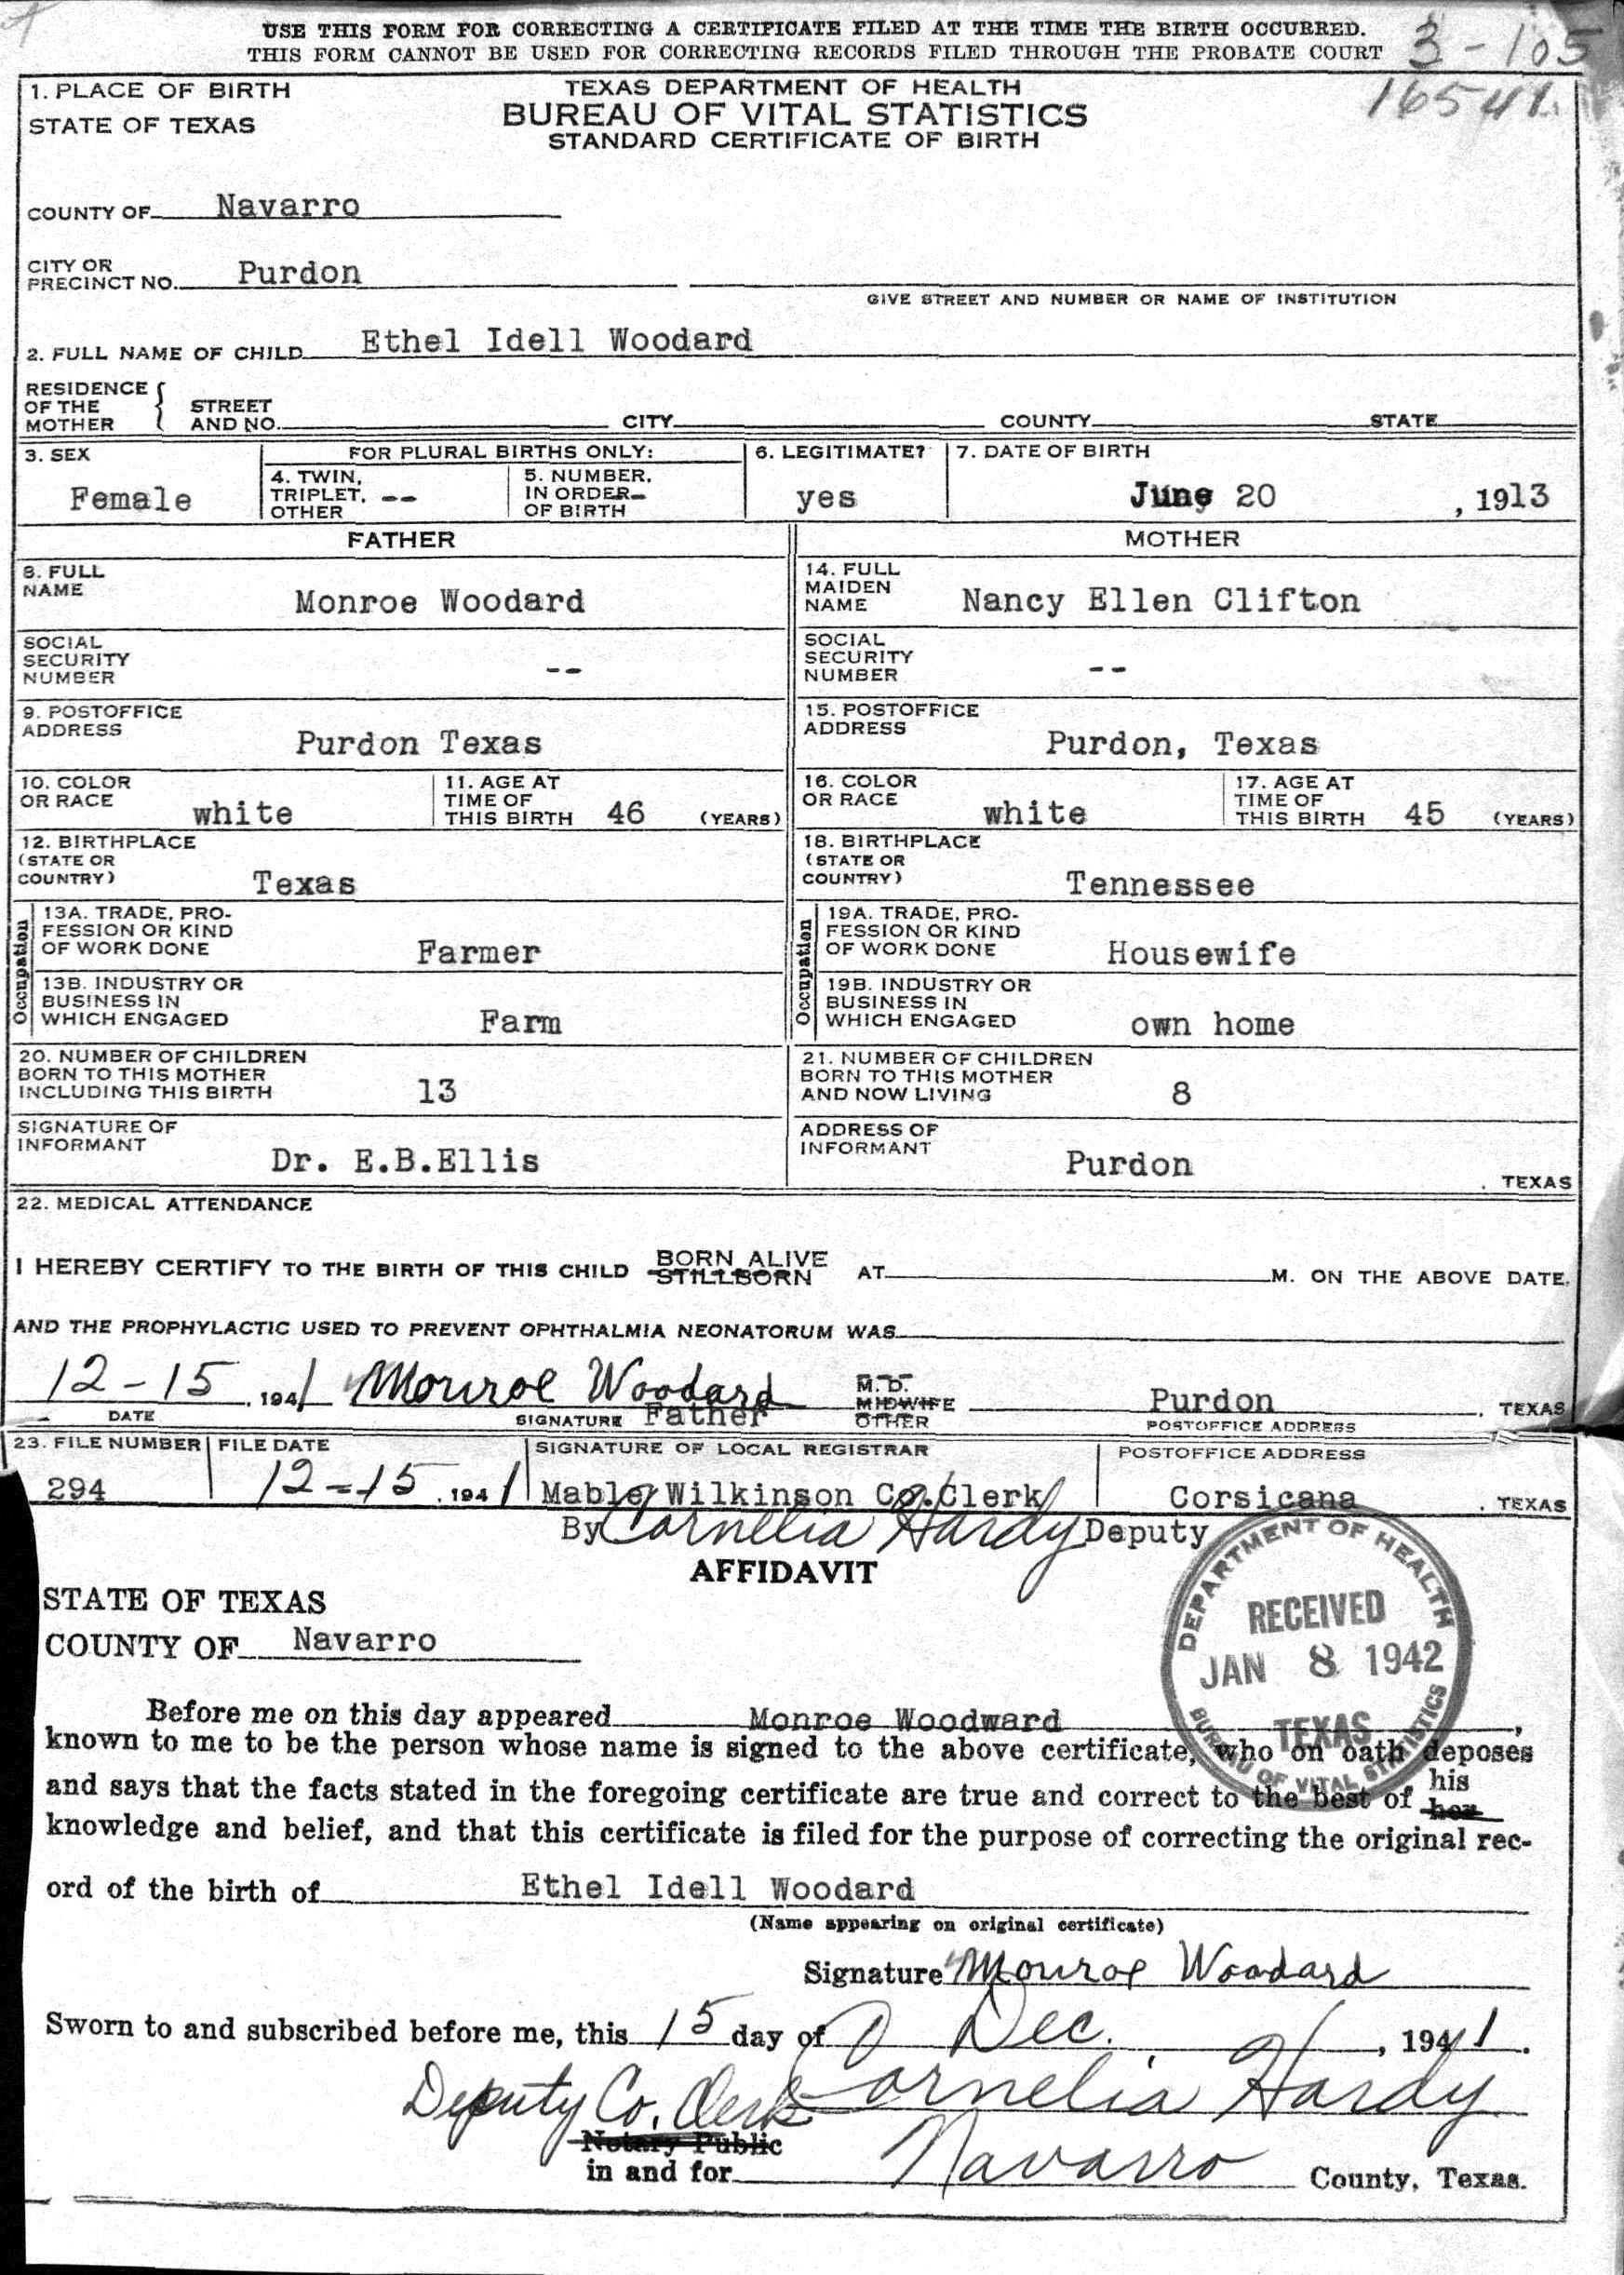 USE THIS FORM FOR CORRECTING A CERTIFICATE FILED AT THE TIME THE BIRTH OCCURRED.
THIS FORM CANNOT BE USED FOR CORRECTING RECORDS FILED THROUGH THE PROBATE COURT
3-105
16541
1. PLACE OF BIRTH
STATE OF TEXAS
TEXAS DEPARTMENT OF HEALTH
BUREAU OF VITAL STATISTICS
STANDARD CERTIFICATE OF BIRTH
COUNTY OF Navarro
CITY OR
PRECINCT NO. Purdon
GIVE STREET AND NUMBER OR NAME OF INSTITUTION
2. FULL NAME OF CHILD Ethel Idell Woodard
RESIDENCE
OF THE
MOTHER
STREET
AND NO. CITY COUNTY STATE
3. SEX
Female
FOR PLURAL BIRTHS ONLY:
4. TWIN,
TRIPLET, --
OTHER
5. NUMBER,
IN ORDER-
OF BIRTH
6. LEGITIMATE?
yes
7. DATE OF BIRTH
June 20, 1913
FATHER
MOTHER
8. FULL
NAME
Monroe Woodard
14. FULL
MAIDEN
NAME
Nancy Ellen Clifton
SOCIAL
SECURITY
NUMBER
--
SOCIAL
SECURITY
NUMBER
--
9. POSTOFFICE
ADDRESS
Purdon Texas
15. POSTOFFICE
ADDRESS
Purdon, Texas
10. COLOR
OR RACE
white
11. AGE AT
TIME OF
THIS BIRTH 46 (YEARS)
16. COLOR
OR RACE
white
17. AGE AT
TIME OF
THIS BIRTH 45 (YEARS)
12. BIRTHPLACE
(STATE OR
COUNTRY)
Texas
18. BIRTHPLACE
(STATE OR
COUNTRY)
Tennessee
Occupation
13A. TRADE, PRO-
FESSION OR KIND
OF WORK DONE
Farmer
Occupation
19A. TRADE, PRO-
FESSION OR KIND
OF WORK DONE
Housewife
13B. INDUSTRY OR
BUSINESS IN
WHICH ENGAGED
Farm
19B. INDUSTRY OR
BUSINESS IN
WHICH ENGAGED
own home
20. NUMBER OF CHILDREN
BORN TO THIS MOTHER
INCLUDING THIS BIRTH
13
21. NUMBER OF CHILDREN
BORN TO THIS MOTHER
AND NOW LIVING
8
SIGNATURE OF
INFORMANT
Dr. E.B.Ellis
ADDRESS OF
INFORMANT
Purdon, TEXAS
22. MEDICAL ATTENDANCE
I HEREBY CERTIFY TO THE BIRTH OF THIS CHILD BORN ALIVE STILLBORN AT M. ON THE ABOVE DATE,
AND THE PROPHYLACTIC USED TO PREVENT OPHTHALMIA NEONATORUM WAS
12-15, 1941 Monroe Woodard
DATE
SIGNATURE Father
M. D.
MIDWIFE
OTHER
Purdon, TEXAS
POSTOFFICE ADDRESS
23. FILE NUMBER
294
FILE DATE
12-15, 1941
SIGNATURE OF LOCAL REGISTRAR
Mable Wilkinson Co.Clerk
POSTOFFICE ADDRESS
Corsicana, TEXAS
By Cornelia Hardy Deputy
AFFIDAVIT
DEPARTMENT OF HEALTH
RECEIVED
JAN 8 1942
TEXAS
BUREAU OF VITAL STATISTICS
STATE OF TEXAS
COUNTY OF Navarro
Before me on this day appeared Monroe Woodward,
known to me to be the person whose name is signed to the above certificate, who on oath deposes
and says that the facts stated in the foregoing certificate are true and correct to the best of his her
knowledge and belief, and that this certificate is filed for the purpose of correcting the original rec-
ord of the birth of Ethel Idell Woodard
(Name appearing on original certificate)
Signature Monroe Woodard
Sworn to and subscribed before me, this 15 day of Dec., 1941.
Deputy Co. Clerk Cornelia Hardy
Notary Public
in and for Navarro County, Texas.